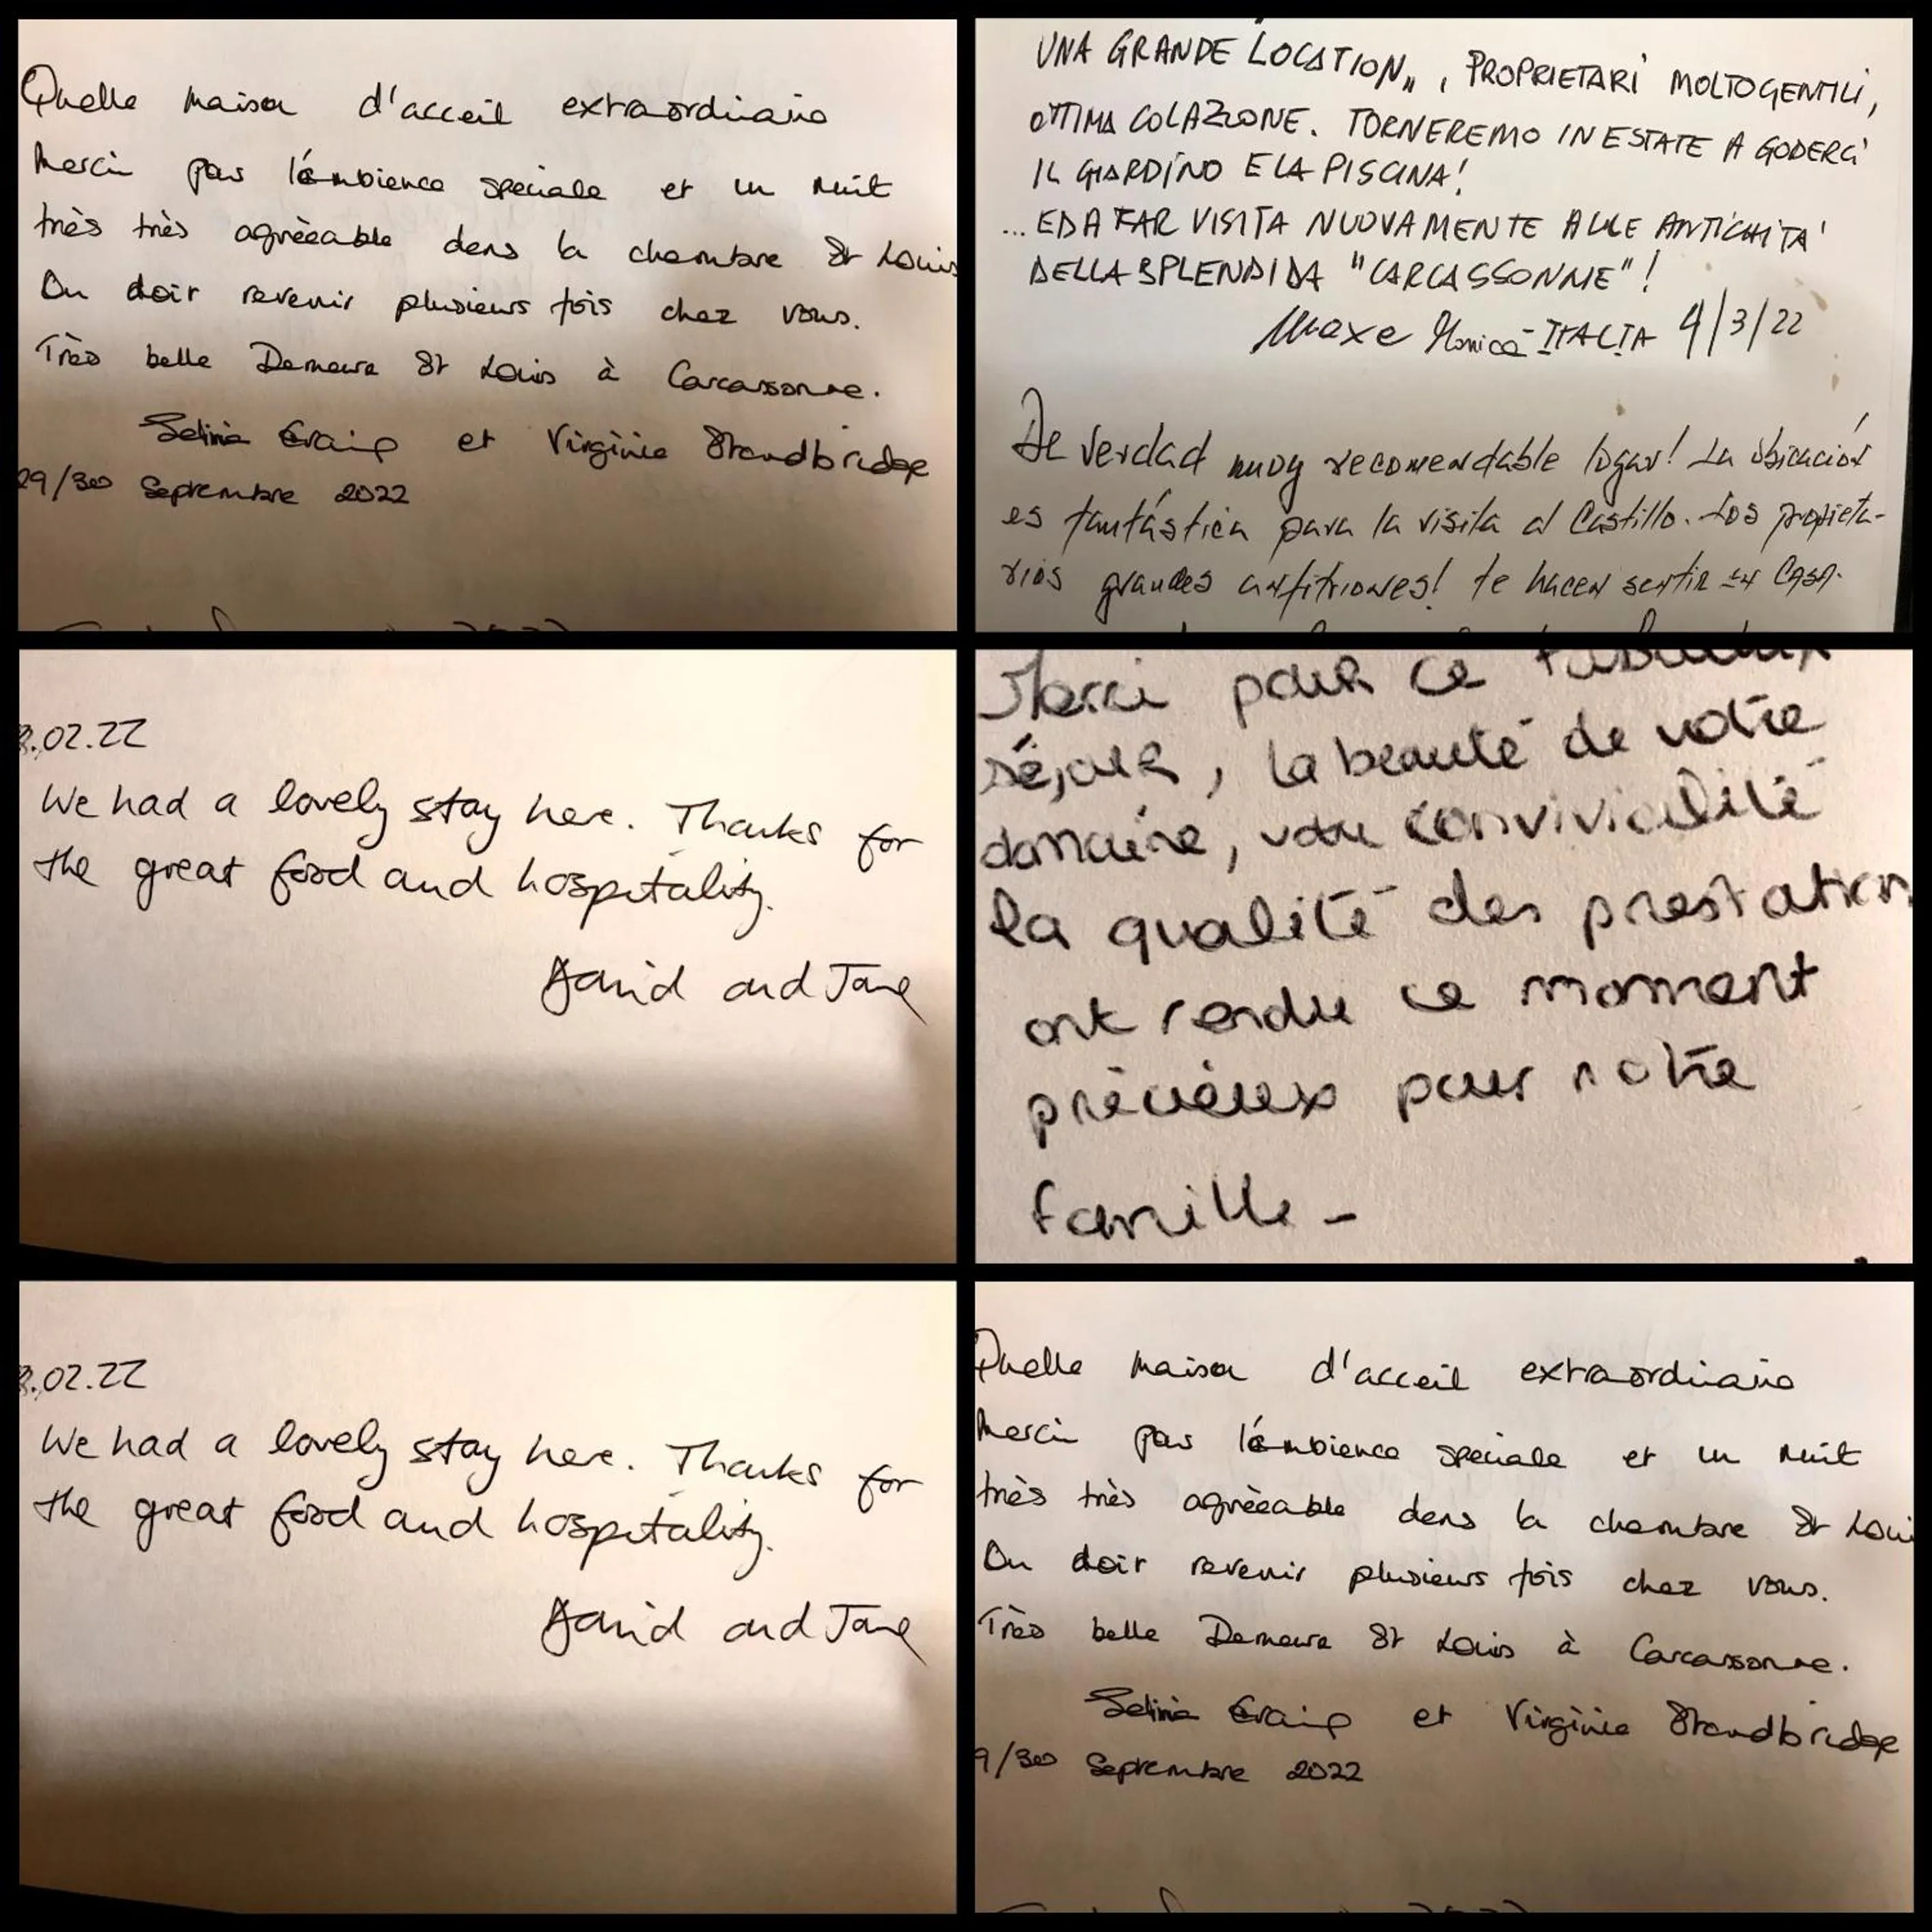 Quelle maison d'acceil extraordinaire
Merci par l'ámbience speciale et un nuit
très très agrèeable dans la chambre St Louis
On doir revenir plusieurs fois chez vous.
Très belle Demeure St Louis à Carcassonne.
et Virginie Standbridge
29/30 Septembre 2022
UNA GRANDE LOCATION", PROPRIETARI MOLTO GENTILI,
OTTIMA COLAZIONE. TORNEREMO IN ESTATE A GODERCI
IL GIARDINO E LA PISCINA!
...ED A FAR VISITA NUOVAMENTE ALLE ANTICHITA'
DELLA SPLENDIDA "CARCASSONNE"!
Maxe Monica - ITALIA 4/3/22
De verdad muy recomendable logar! La ubicación
es fantástica para la visita al Castillo. Los propieta-
rios grandes anfitriones! te hacen sentir en Casa.
.02.22
We had a lovely stay here. Thanks for
the great food and hospitality.
David and Jane
Merci pour ce fabuleux
séjour, la beauté de votre
domaine, votre convivialité
la qualité des prestation
ont rendu ce moment
précieux pour notre
famille -
.02.22
We had a lovely stay here. Thanks for
the great food and hospitality.
David and Jane
Quelle maison d'acceil extraordinaire
Merci par l'ámbience speciale et un nuit
très très agrèeable dans la chambre St Loui
On doir revenir plusieurs fois chez vous.
Très belle Demeure St Louis à Carcassonne.
et Virginie Standbridge
9/30 Septembre 2022